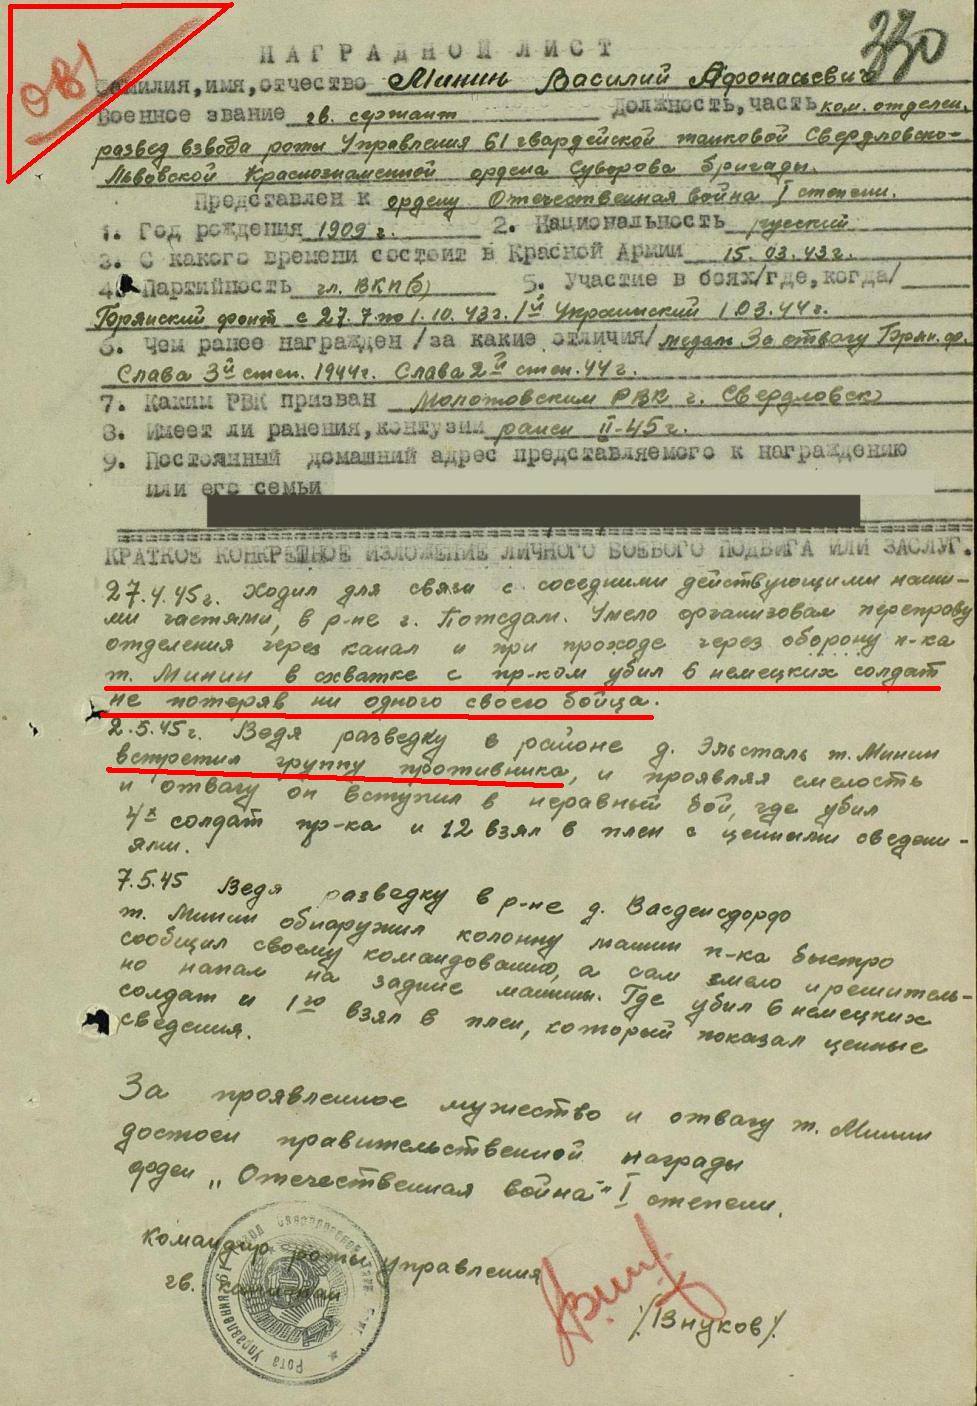 ОВ1
330
НАГРАДНОЙ ЛИСТ
Фамилия,имя,отчество Минин Василий Афонасьевич
Военное звание гв. сержант Должность,часть ком. отделен.
развед взвода роты Управления 61 гвардейской танковой Свердловско-
Львовской Краснознаменной ордена Суворова бригады.
Представлен к ордену Отечественная война I степени.
1. Год рождения 1909 г. 2. Национальность русский
3. С какого времени состоит в Красной Армии 15.03.43г.
4. Партийность чл. ВКП(б) 5. Участие в боях/где,когда/
Брянский фронт с 27.7. по 1.10.43г. 1й Украинский 1.03.44г.
6. Чем ранее награжден /за какие отличия/ медаль За отвагу Брян. фр.
Слава 3й степ. 1944г. Слава 2й степ. 44г.
7. Каким РВК призван Молотовским РВК г. Свердловск
8. Имеет ли ранения,контузии ранен II-45г.
9. Постоянный домашний адрес представляемого к награждению
или его семьи
КРАТКОЕ КОНКРЕТНОЕ ИЗЛОЖЕНИЕ ЛИЧНОГО БОЕВОГО ПОДВИГА ИЛИ ЗАСЛУГ.
27.4.45г. Ходил для связи с соседними действующими наши-
ми частями, в р-не г. Потсдам. Умело организовал переправу
отделения через канал и при проходе через оборону п-ка
т. Минин в схватке с пр-ком убил 6 немецких солдат
не потеряв ни одного своего бойца.
2.5.45г. Ведя разведку в районе д. Эльсталь т. Минин
встретил группу противника, и проявляя смелость
и отвагу он вступил в неравный бой, где убил
4х солдат пр-ка и 12 взял в плен с ценными сведени-
ями.
7.5.45 Ведя разведку в р-не д.
т. Минин обнаружил колонну машин п-ка быстро
сообщил своему командованию, а сам смело и решитель-
но напал на задние машины. Где убил 6 немецких
солдат и 1го взял в плен, который показал ценные
сведения.
За проявленное мужество и отвагу т. Минин
достоен правительственной награды
орден „Отечественная война" I степени.
Командир роты Управления
гв. капитан
/Внуков/
Рота Управления